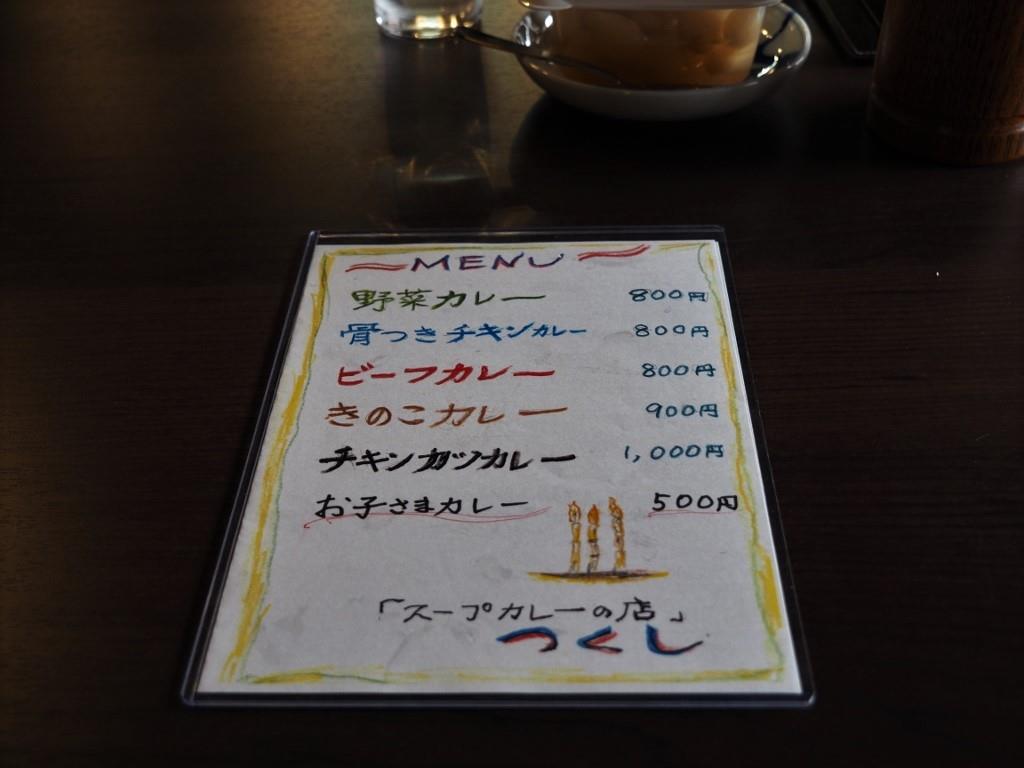 MENU
野菜カレー 800円
骨つきチキンカレー 800円
ビーフカレー 800円
きのこカレー 900円
チキンカツカレー 1,000円
お子さまカレー 500円
「スープカレーの店」
つくし